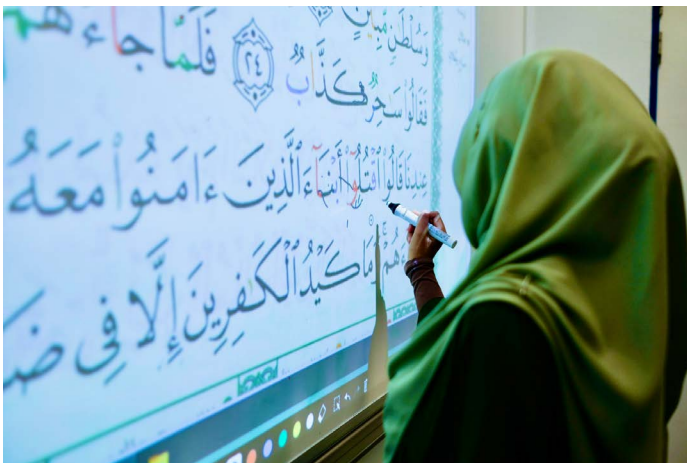 وَسُلْطَٰنٍ مُّبِينٍ
فَقَالُوا۟ سَٰحِرٌ كَذَّابٌ ٢٤ فَلَمَّا جَآءَهُم
عِندِنَا قَالُوا۟ ٱقْتُلُوٓا۟ أَبْنَآءَ ٱلَّذِينَ ءَامَنُوا۟ مَعَهُۥ
وَمَا كَيْدُ ٱلْكَٰفِرِينَ إِلَّا فِى